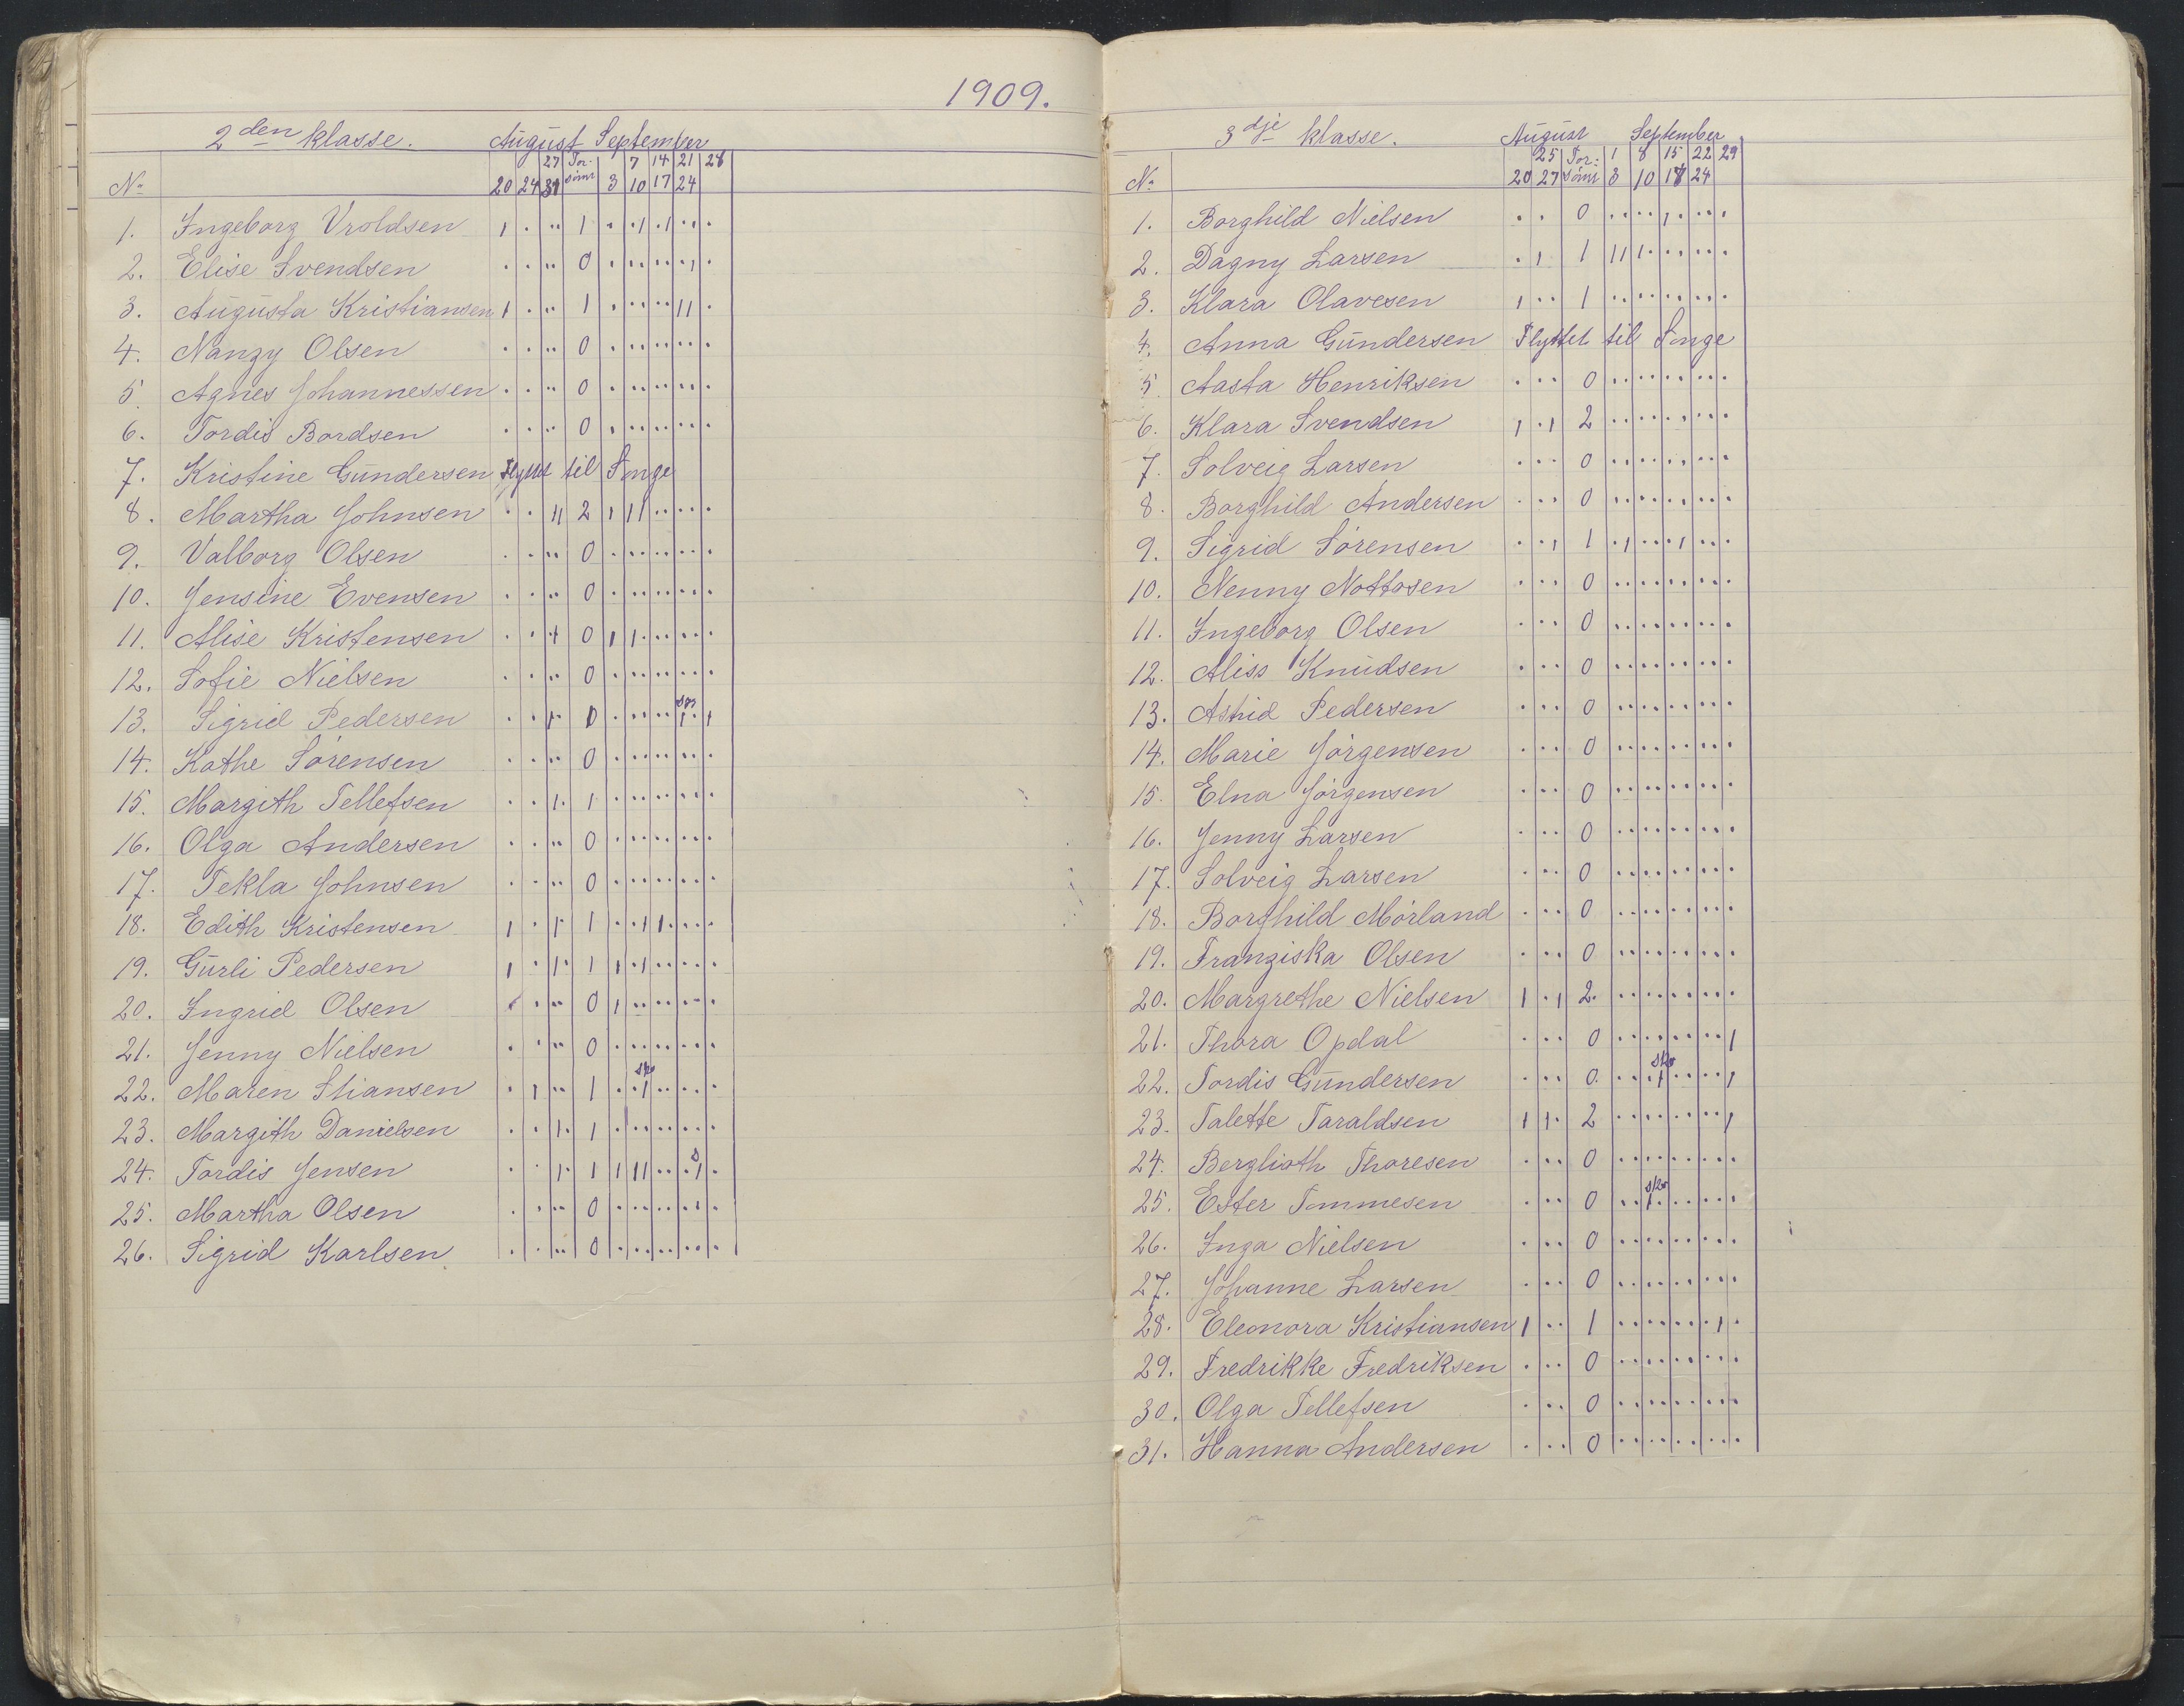 1909.
2den klasse. August September
27 For- 7 14 21 28
No 20 24 31 sömt 3 10 17 24
1. Ingeborg Vroldsen 1
2. Elise Svendsen 0
3. Augusta Kristiansen 1
4. Nanzy Olsen 0
5. Agnes Johannessen 0
6. Tordis Bordsen 0
7. Kristine Gundersen Flyttet til Songe
8. Martha Johnsen 2
9. Valborg Olsen 0
10. Jensine Evensen 0
11. Alise Kristensen 0
12. Sofie Nielsen 0
13. Sigrid Pedersen
14. Kathe Sörensen 0
15. Margith Tellefsen 1
16. Olga Andersen 0
17. Tekla Johnsen 0
18. Edith Kristensen 1
19. Gurli Pedersen 1
20. Ingrid Olsen 0
21. Jenny Nielsen 0
22. Maren Stiansen 1
23. Margith Danielsen 1
24. Tordis Jensen 1
25. Martha Olsen 0
26. Sigrid Karlsen 0
3dje klasse. August September
25 For- 1 8 15 22 29
No 20 27 sömt 3 10 17 24
1. Borghild Nielsen 0
2. Dagny Larsen 1
3. Klara Olavesen 1
4. Anna Gundersen Flyttet til Songe
5. Aasta Henriksen 0
6. Klara Svendsen 2
7. Solveig Larsen 0
8. Borghild Andersen 0
9. Sigrid Sörensen 1
10. Nenny Nottosen 0
11. Ingeborg Olsen 0
12. Aliss Knudsen 0
13. Astrid Pedersen 0
14. Marie Jörgensen 0
15. Elna Jörgensen 0
16. Jenny Larsen 0
17. Solveig Larsen 0
18. Borghild Mörland 0
19. Franziska Olsen 0
20. Margrethe Nielsen 2
21. Thora Opdal 0
22. Tordis Gundersen 0
23. Talette Taraldsen 2
24. Berglioth Thoresen 0
25. Ester Tommesen 0
26. Inga Nielsen 0
27. Johanne Larsen 0
28. Eleonora Kristiansen 1
29. Fredrikke Fredriksen 0
30. Olga Tellefsen 0
31. Hanna Andersen 0